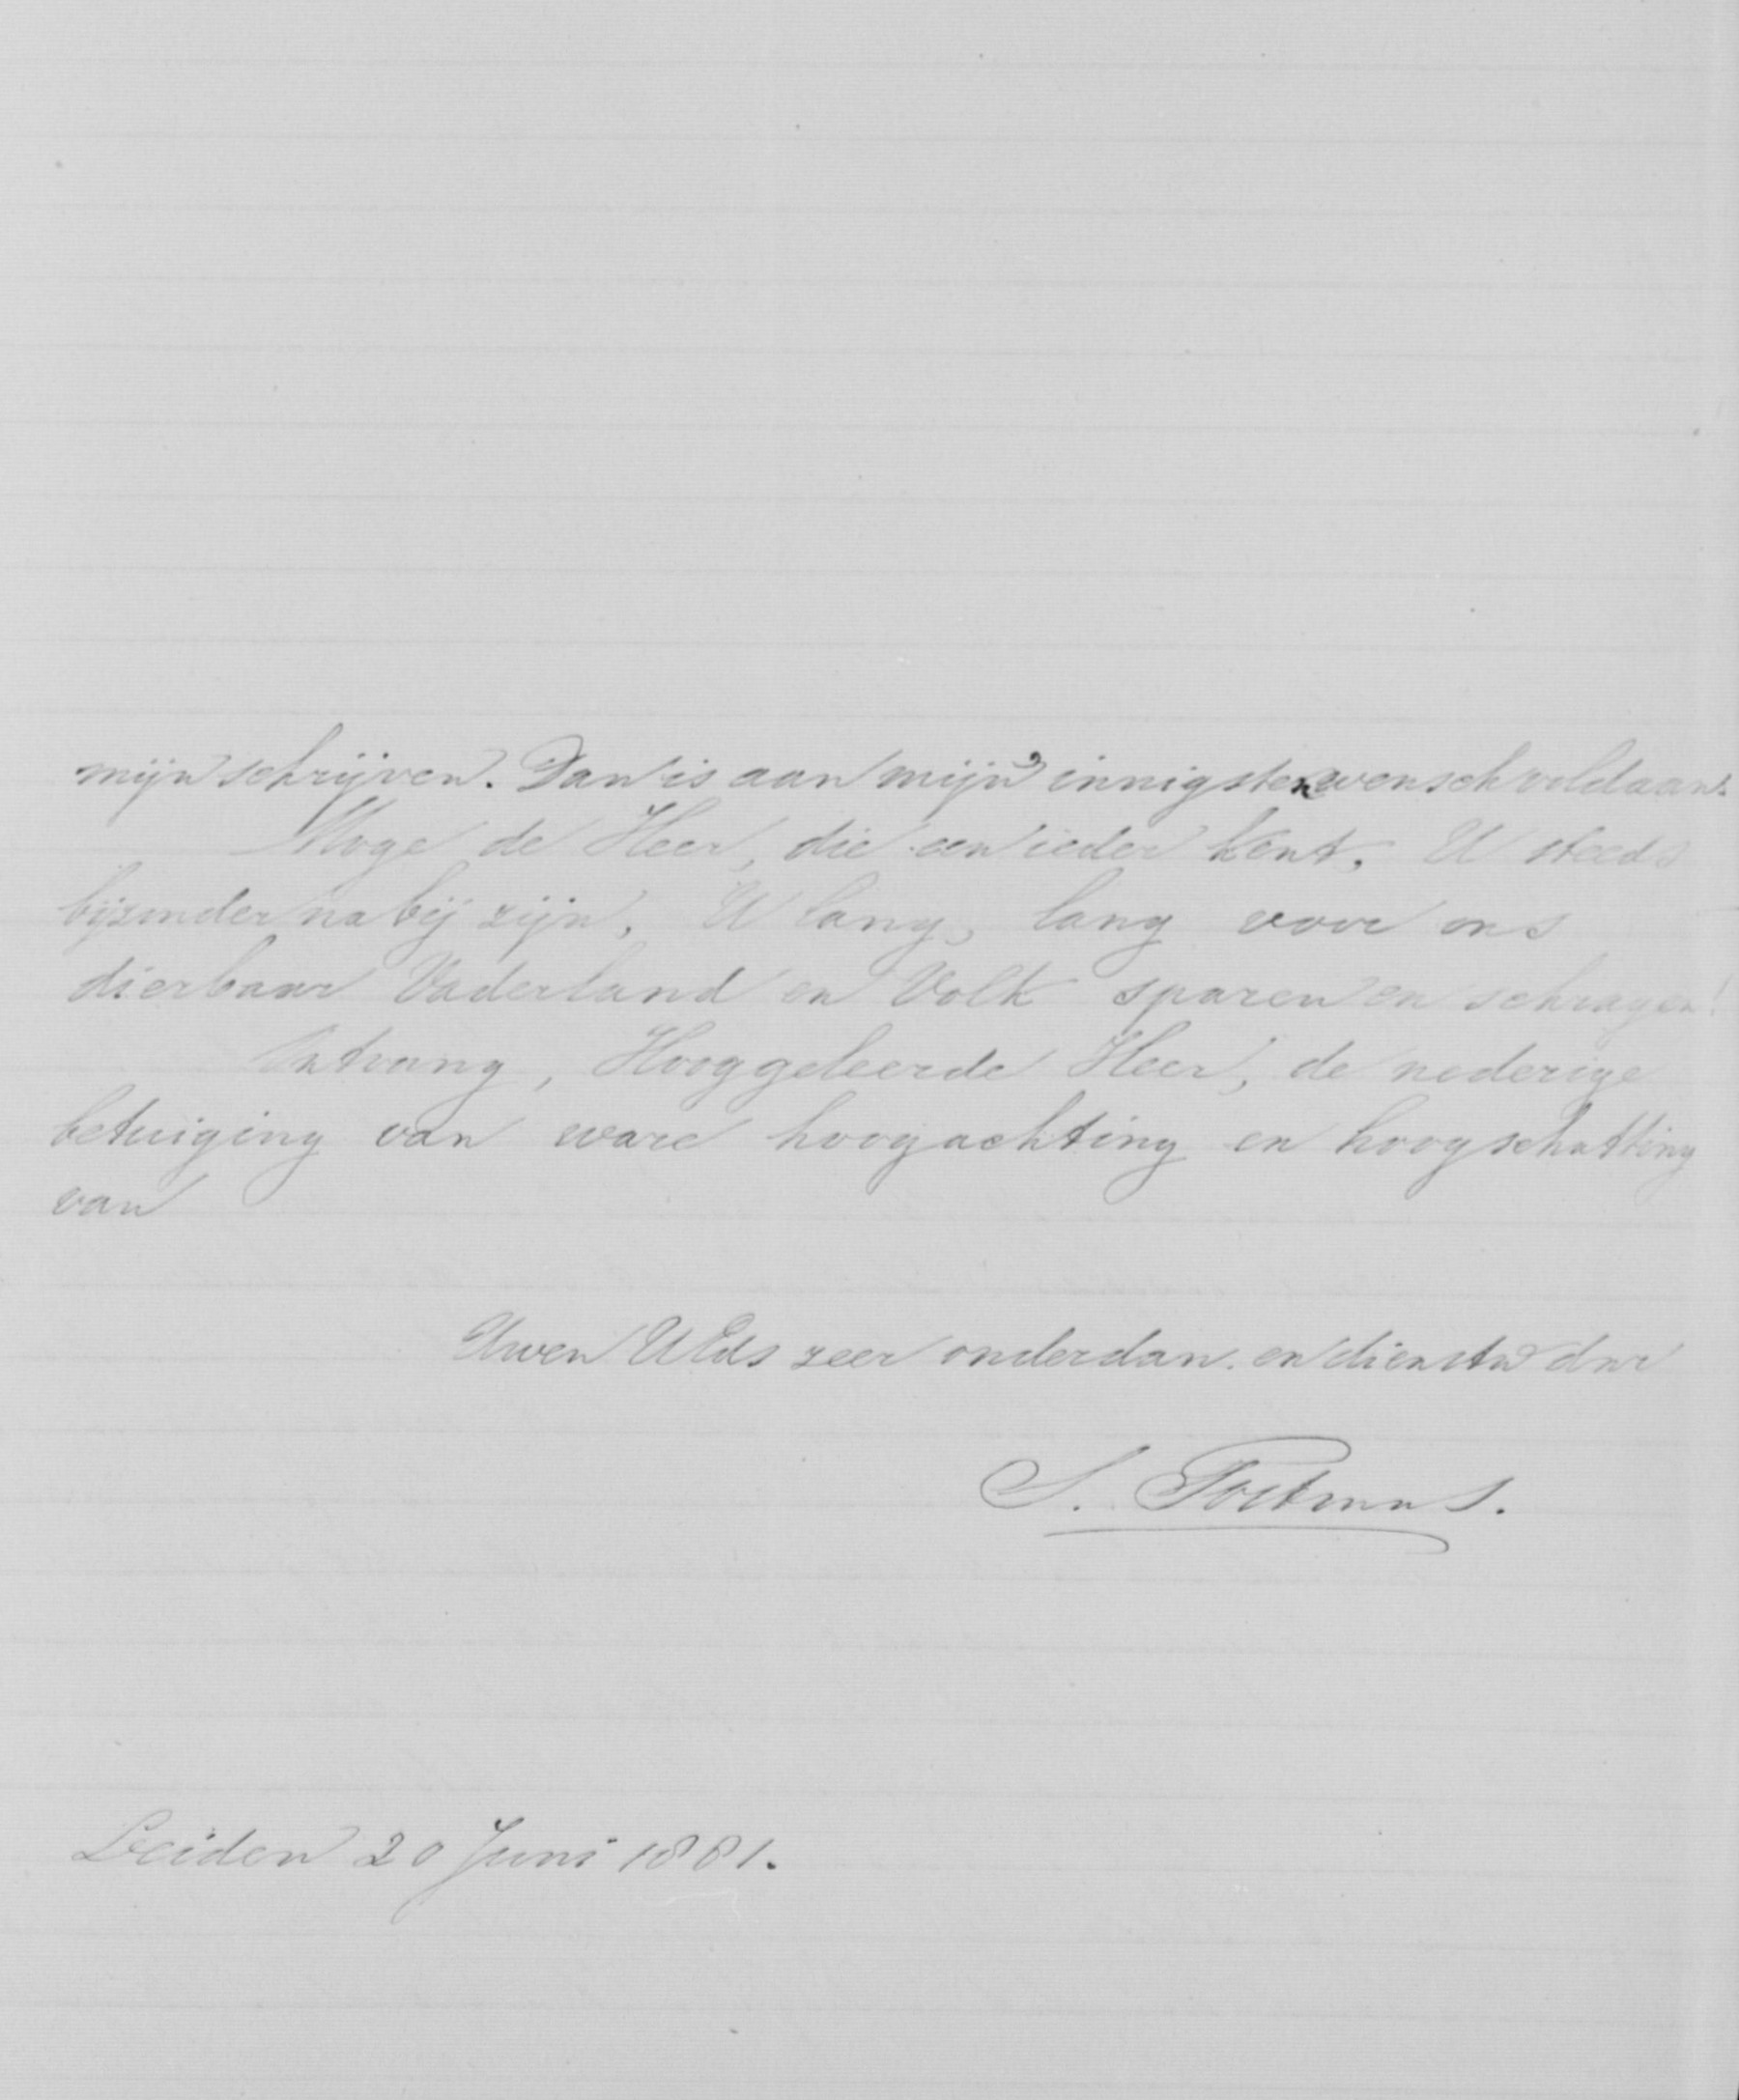 mijn schrijven. Dan is aan mijn innigsten wensch voldaan.
Moge de Heer, die een ieder kent, U steeds
bijzonder nabij zijn, U lang, lang voor ons
dierbaar Vaderland en Volk sparen en schragen!
Ontvang, Hooggeleerde Heer, de nederige
betuiging van ware hoogachting en hoogschatting
van
Uwen UEds zeer onderdan. en dienstw dnr
S.
Leiden 20 Juni 1881.